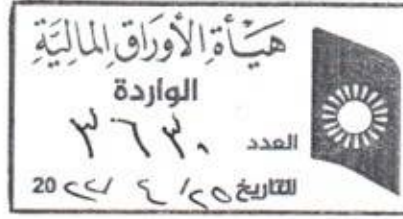 هَيئَة الأَورَاق المَالِيَّةِ
الواردة
العدد ٣٦٣٠
التاريخ ٢٥ / ٤ / ٢٢ 20